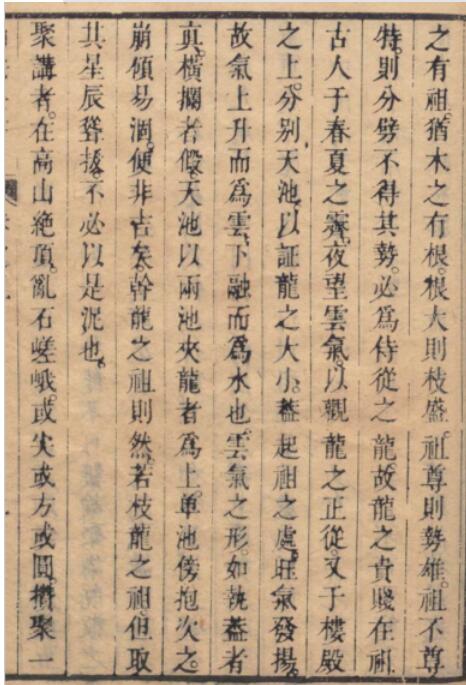 之有祖。猶木之有根。根大則枝盛。祖尊則勢雄。祖不尊
特。則分劈不得其勢。必為侍從之龍。故龍之貴賤在祖。
古人于春夏之霽。夜望雲氣。以觀龍之正從。又于樓殿
之上。分別天池。以証龍之大小。蓋起祖之處。旺氣發揚。
故氣上升而為雲。下融而為水也。雲氣之形。如執蓋者
真。橫攔者假。天池以兩池夾龍者為上。單池傍抱次之。
崩傾易涸。便非吉矣。幹龍之祖則然。若枝龍之祖。但取
其星辰聳拔。不必以是泥也。
聚講者。在高山絶頂。亂石嵯峨。或尖或方或圓。攢聚一